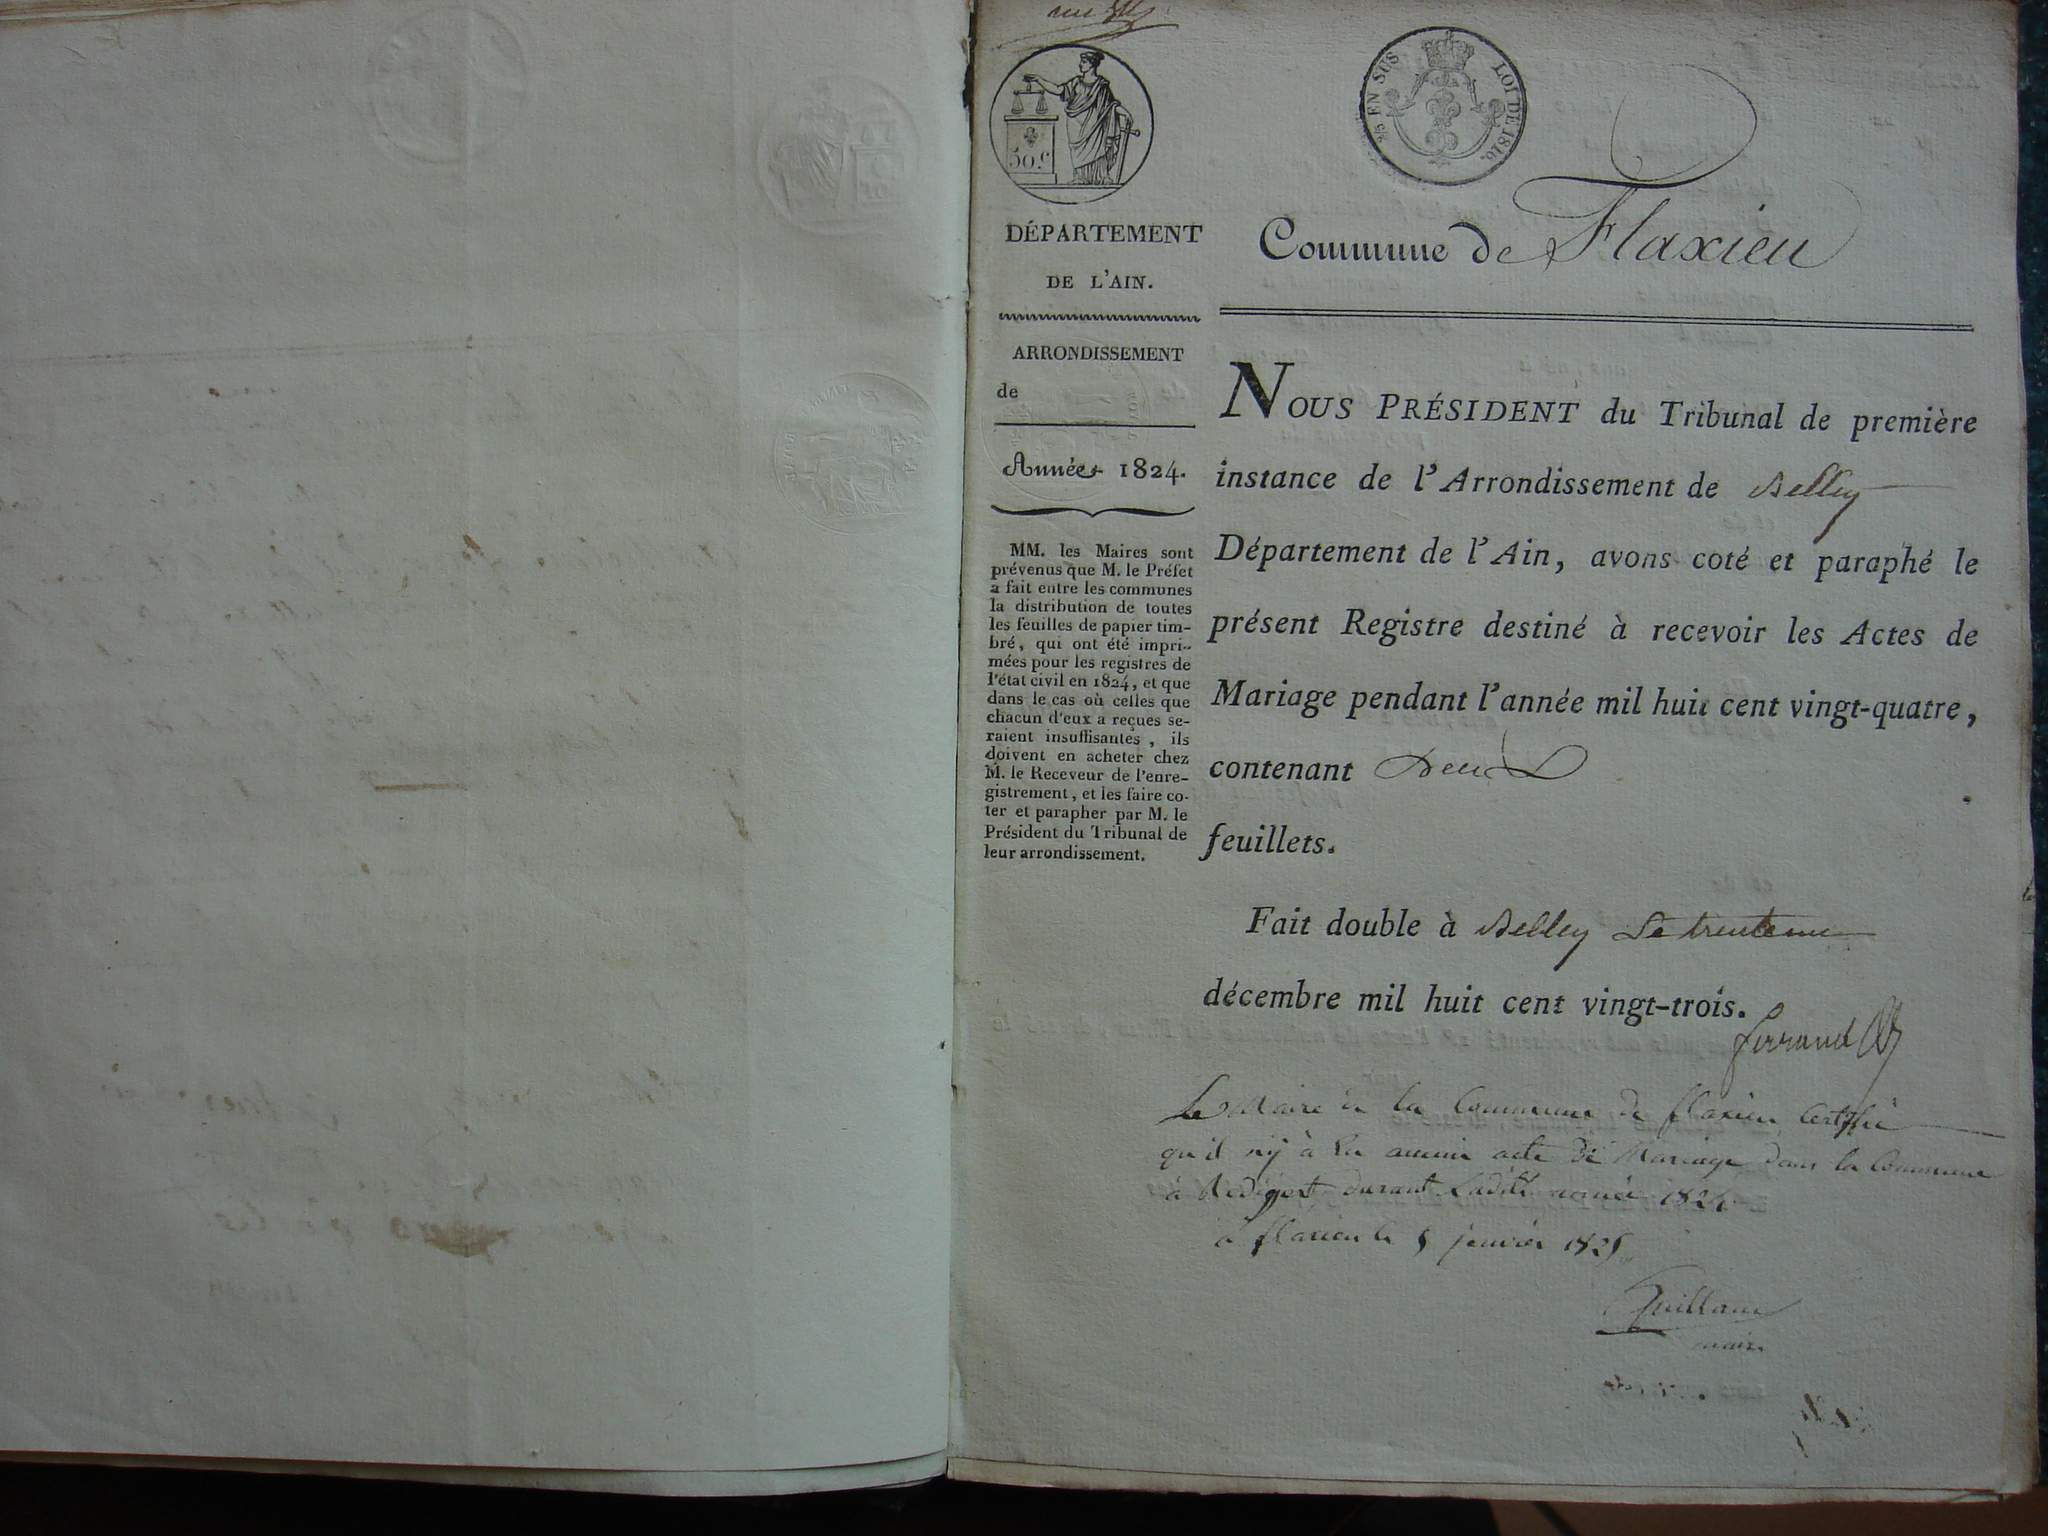 50 c.
2/5 EN SUS LOI DE 1816.
DÉPARTEMENT
DE L'AIN.
ARRONDISSEMENT
de
Année 1824.
MM. les Maires sont
prévenus que M. le Préfet
a fait entre les communes
la distribution de toutes
les feuilles de papier tim-
bré, qui ont été impri-
mées pour les registres de
l'état civil en 1824, et que
dans le cas où celles que
chacun d'eux a reçues se-
raient insuffisantes, ils
doivent en acheter chez
M. le Receveur de l'enre-
gistrement, et les faire co-
ter et parapher par M. le
Président du Tribunal de
leur arrondissement.
Commune de Flaxieu
NOUS PRÉSIDENT du Tribunal de première
instance de l'Arrondissement de Belley
Département de l'Ain, avons coté et paraphé le
présent Registre destiné à recevoir les Actes de
Mariage pendant l'année mil huit cent vingt-quatre,
contenant Deux
feuillets.
Fait double à Belley Le trente un
décembre mil huit cent vingt-trois.
ferrand
Le Maire de la Commune de flaxieu Certifie
qu'il n'y à Eu aucun acte de Mariage dans la Commune
à Rediger durant Ladite année 1824
à flaxieu le 5 janvier 1825
Guillaume
maire